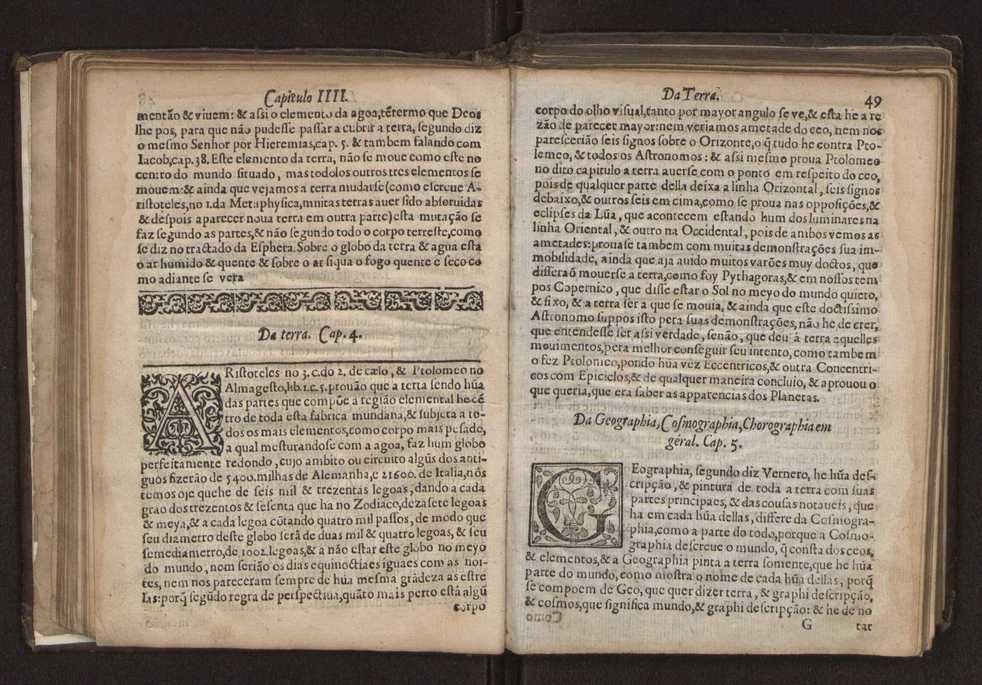 Capitulo IIII.
mentão & viuem: & assi o elemento da agoa,tẽ termo que Deos
lhe pos, para que não pudesse passar a cubrir a terra, segundo diz
o mesmo Senhor por Hieremias,cap. 5. & tambem falando com
Iacob,cap. 38. Este elemento da terra, não se moue como este no
centro do mundo situado, mas todolos outros tres elementos se
mouem: & ainda que vejamos a terra mudarse (como escreue A-
ristoteles,no 1.da Metaphysica,muitas terras auer sido absoruidas
& despois aparecer noua terra em outra parte) esta mutação se
faz segundo as partes,& não segundo todo o corpo terreste,como
se diz no tractado da Esphera. Sobre o globo da terra & agua està
o ar humido & quente & sobre o ar si qua o fogo quente e seco co
mo adiante se vera
Da terra. Cap. 4.
ARistoteles no 3.c.do 2. de cælo, & Ptolomeo no
Almagesto,lib.1.c.5.prouão que a terra sendo hũa
das partes que compõe a região elemental he cẽ
tro de toda esta fabrica mundana,& subjeta a to-
dos os mais elementos,como corpo mais pesado,
a qual mesturandose com a agoa, faz hum globo
perfeitamente redondo, cujo ambito ou circuito algũs dos anti-
guos fizerão de 5400.milhas de Alemanha,e 21600. de Italia,nòs
temos oje que he de seis mil & trezentas legoas, dando a cada
grao dos trezentos & sesenta que ha no Zodiaco,dezasete legoas
& meya,& a cada legoa cõtando quatro mil passos, de modo que
seu diametro deste globo serà de duas mil & quatro legoas, & seu
semediametro,de 1002.legoas,& a não estar este globo no meyo
do mundo, nem serião os dias equinoctiaes iguaes com as noi-
tes, nem nos pareceram sempre de hũa mesma grãdeza as estre
las:porq̃ segũdo regra de perspectiua,quãto mais perto està algũ
corpo
Da Terra.
49
corpo do olho visual,tanto por mayor angulo se ve,& esta he a re
zão de parecer mayor:nem veriamos ametade do ceo, nem nos
parescerião seis signos sobre o Orizonte,o q̃ tudo he contra Pto-
lemeo, & todos os Astronomos: & assi mesmo proua Ptolomeo
no dito capitulo a terra auerse com o ponto em respeito do ceo,
pois de qualquer parte della deixa a linha Orizontal, seis signos
debaixo,& outros seis em cima,como se proua nas opposições,&
eclipses da Lũa, que acontecem estando hum dos luminares na
linha Oriental, & outro na Occidental, pois de ambos vemos as
ametades:prouase tambem com muitas demonstrações sua im-
mobilidade, ainda que aja auido muitos varões muy doctos, que
disserão mouerse a terra,como foy Pythagoras,& em nossos tem
pos Copernico, que disse estar o Sol no meyo do mundo quieto,
& fixo, & a terra ser a que se mouia, & ainda que este doctissimo
Astronomo suppos isto pera suas demonstrações, não he de crer,
que entendesse ser assi verdade, senão, que deu à terra aquelles
mouimentos,pera melhor conseguir seu intento, como tambem
o fez Ptolomeo,pondo hũa vez Eccentricos,& outra Concentri-
cos com Epiciclos,& de qualquer maneira concluio, & aprouou o
que queria,que era saber as apparencias dos Planetas.
Da Geographia, Cosmographia,Chorographia em
géral. Cap. 5.
GEographia, segundo diz Vernero, he hũa des-
cripção, & pintura de toda a terra com suas
partes principaes, & das cousas notaueis, que
ha em cada hũa dellas, differe da Cosmogra-
phia,como a parte do todo,porque a Cosmo-
graphia descreue o mundo, q̃ consta dos ceos,
& elementos,& a Geographia pinta a terra somente,que he hũa
parte do mundo, como mostra o nome de cada hũa dellas, porq̃
se compoem de Geo, que quer dizer terra, & graphi descripção,
& cosmos,que significa mundo,& graphi descripção: & he de no
G
tar